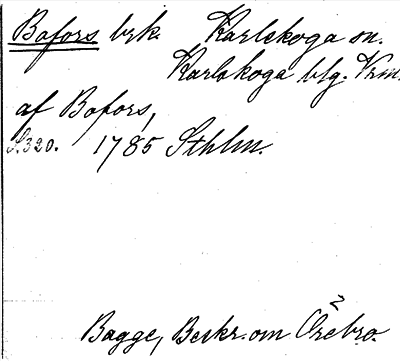 Bofors brk. Karlskoga sn.
Karlskoga blg. Vrm.
af Bofors,
S. 320. 1785 Sthlm.
2
Bagge, Beskr. om Örebro.